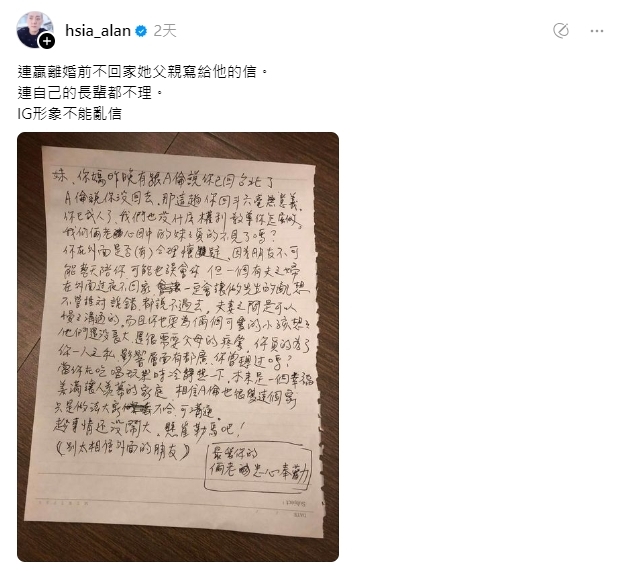 hsia_alan 2天
連贏離婚前不回家她父親寫給他的信。
連自己的長輩都不理。
IG形象不能亂信
妹、你媽昨晚有跟A倫說你已回台北了
A倫說你沒回去、那這趟你回斗六毫無意義
你已成人了、我們也沒什広權利教導你怎広做、
我們倆老心目中的妹妹真的不見了嗎?
你在外面是否(有)合理懷疑、因為朋友不可
能整天陪你 可能也誤會你 但一個有夫之婦
在外面連夜不回家 一定會讓做先生的亂想
不管誰對誰錯、都說不過去、夫妻之間是可以
慢之溝通的、而且你也要為兩個可愛的小孩想之
他們還沒長大 還很需要父母的疼愛、你真的為了
你一人之私 影響層面有都廣、你曾想过嗎?
當你在吃喝玩樂時冷靜想一下、本來是一個幸福
美滿讓人羨慕的家庭、相信A倫也很愛這個家
只是個性不合、可溝通。
趁事情还没鬧大、懸崖勒馬吧!
(別太相信外面的朋友)
最愛你的
倆老 忠心奉勸